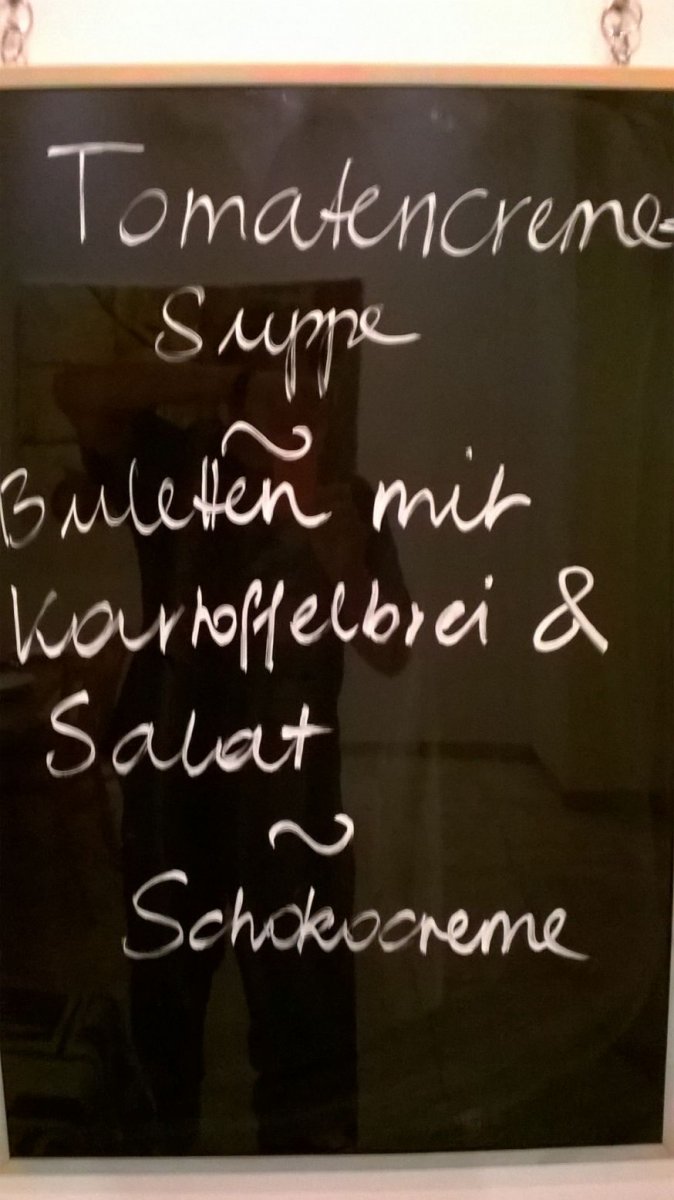 Tomatencreme=
Suppe
~
Buletten mit
Kartoffelbrei &
Salat
~
Schokocreme